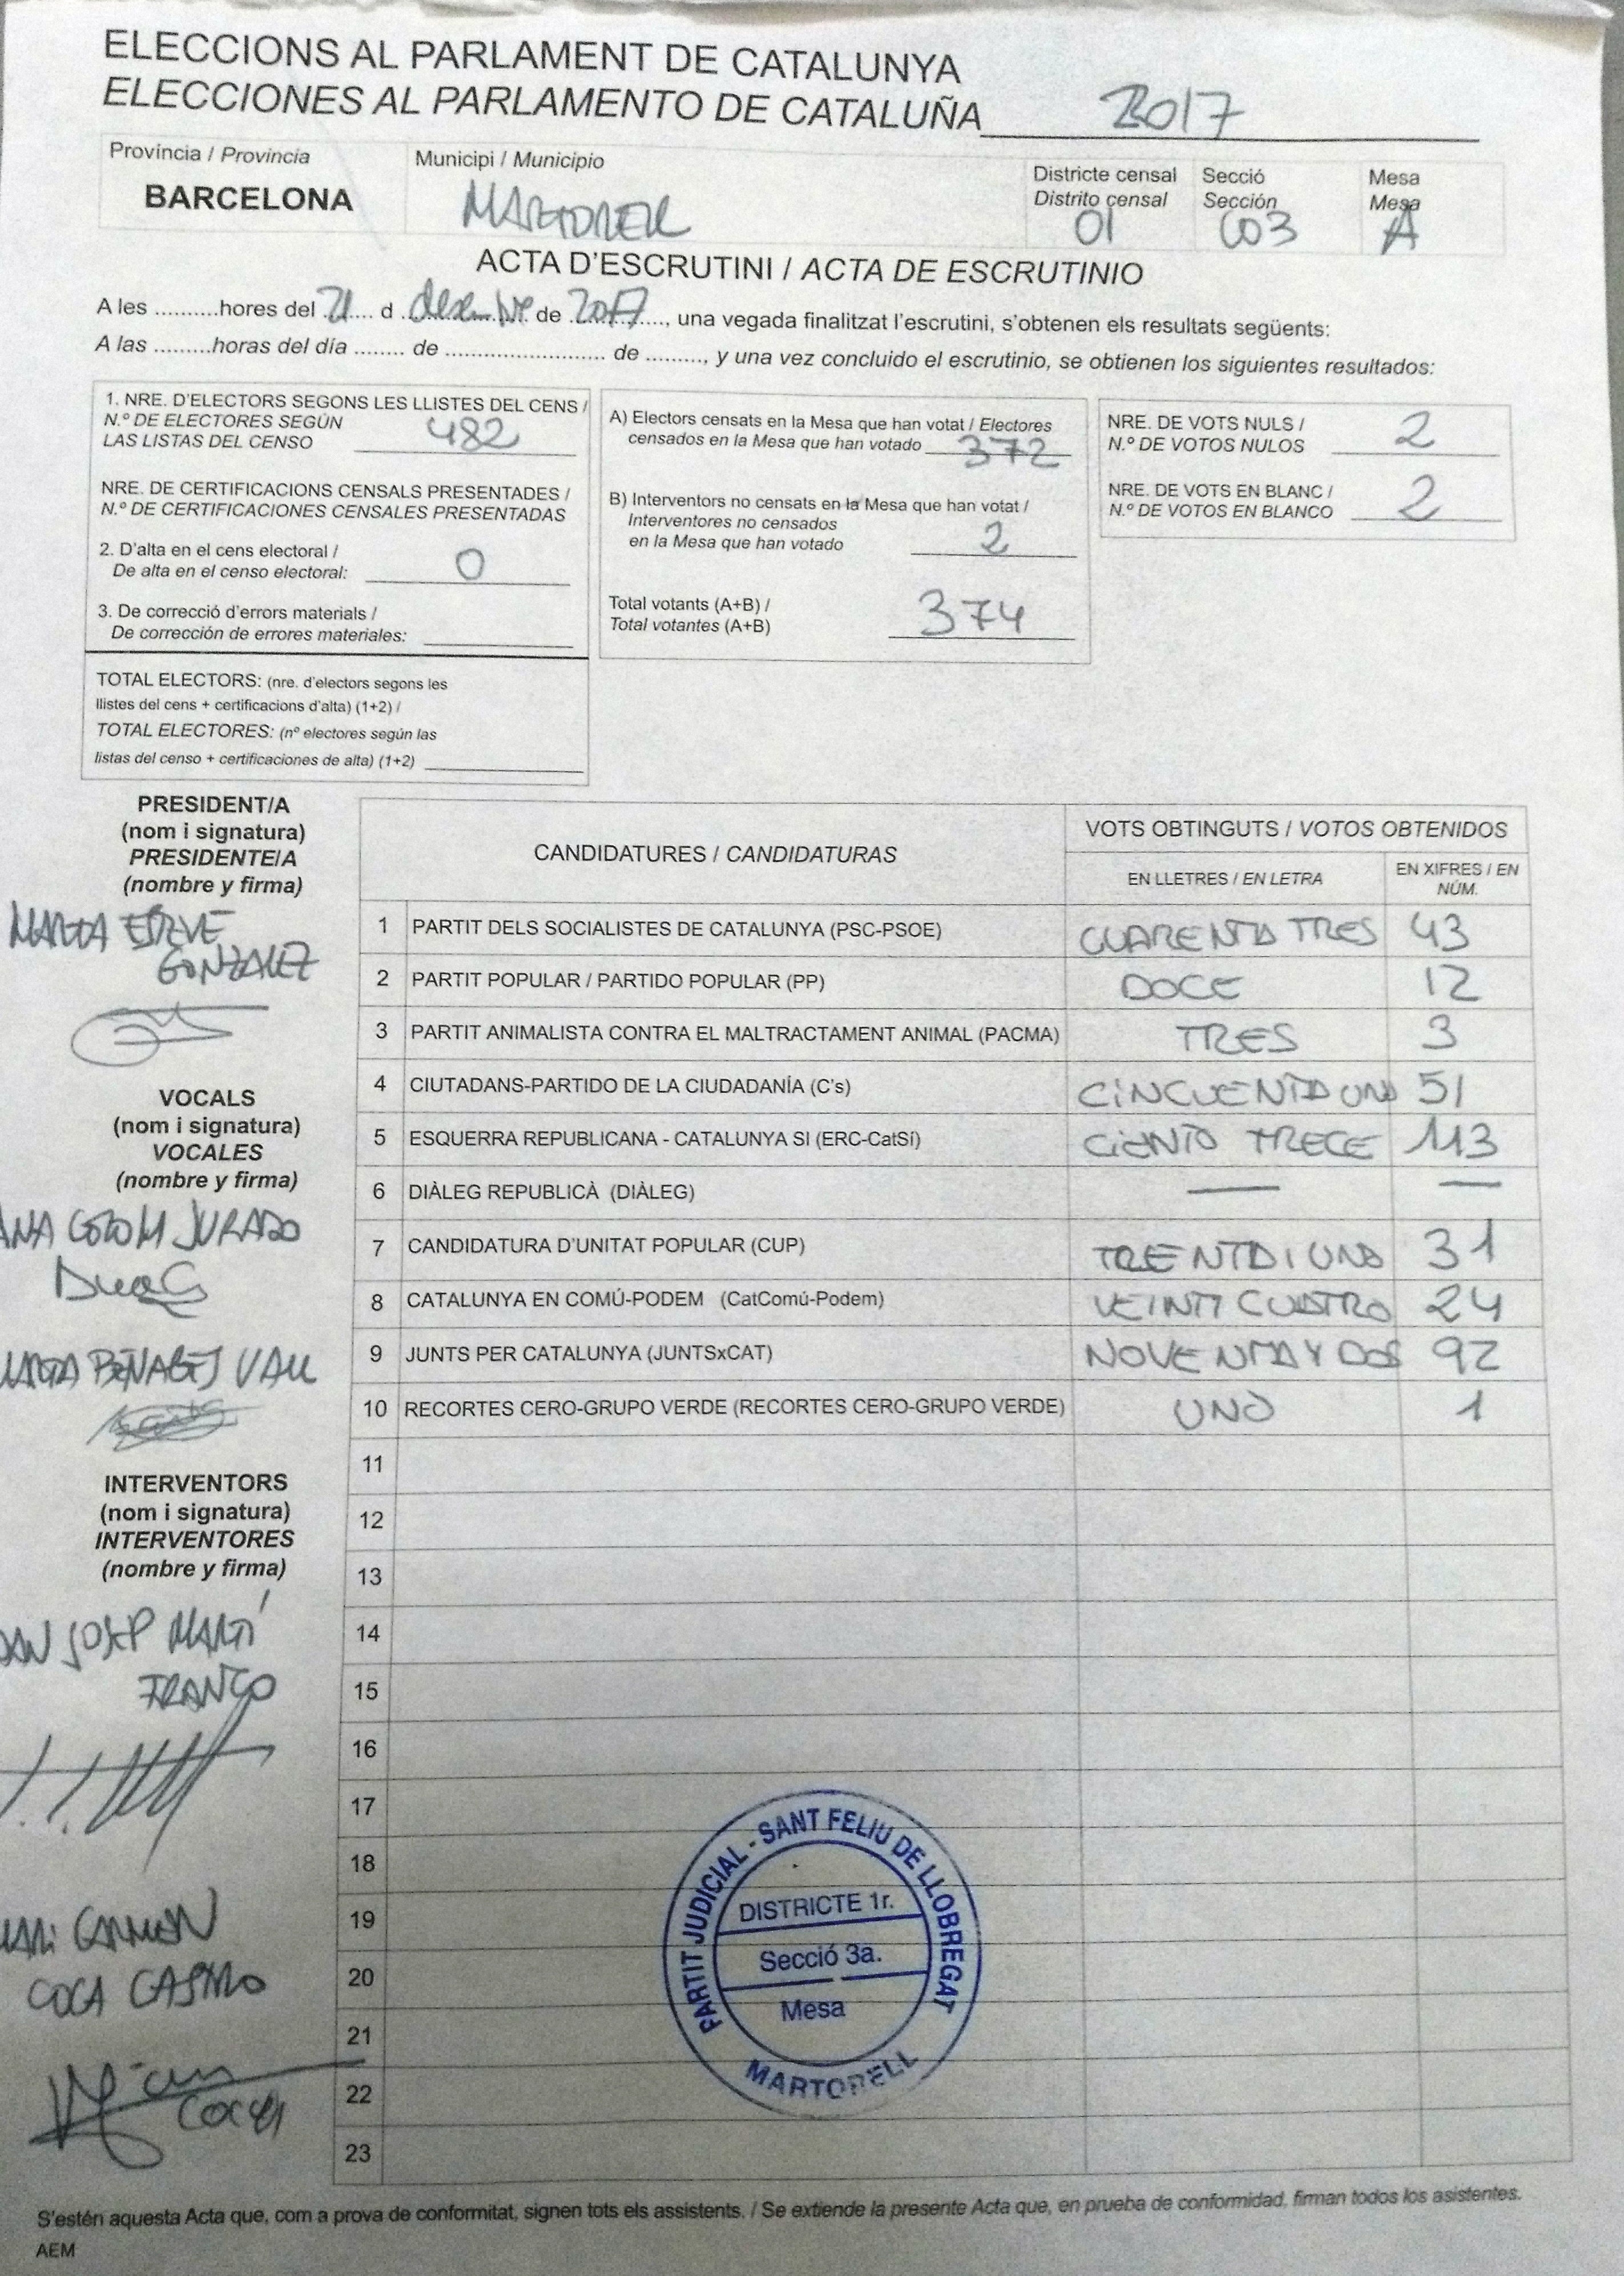 ELECCIONS AL PARLAMENT DE CATALUNYA
ELECCIONES AL PARLAMENTO DE CATALUÑA 2017
Província / Provincia
BARCELONA
Municipi / Municipio
MARTORELL
Districte censal
Distrito censal
01
Secció
Sección
003
Mesa
Mesa
A
ACTA D'ESCRUTINI / ACTA DE ESCRUTINIO
A les ..........hores del 21 d desembre de 2017, una vegada finalitzat l'escrutini, s'obtenen els resultats següents:
A las .........horas del día ........ de .......................... de ........., y una vez concluido el escrutinio, se obtienen los siguientes resultados:
1. NRE. D'ELECTORS SEGONS LES LLISTES DEL CENS /
N.º DE ELECTORES SEGÚN
LAS LISTAS DEL CENSO 482
NRE. DE CERTIFICACIONS CENSALS PRESENTADES /
N.º DE CERTIFICACIONES CENSALES PRESENTADAS
2. D'alta en el cens electoral /
De alta en el censo electoral: 0
3. De correcció d'errors materials /
De corrección de errores materiales:
TOTAL ELECTORS: (nre. d'electors segons les
llistes del cens + certificacions d'alta) (1+2) /
TOTAL ELECTORES: (nº electores según las
listas del censo + certificaciones de alta) (1+2)
A) Electors censats en la Mesa que han votat / Electores
censados en la Mesa que han votado 372
B) Interventors no censats en la Mesa que han votat /
Interventores no censados
en la Mesa que han votado 2
Total votants (A+B) /
Total votantes (A+B) 374
NRE. DE VOTS NULS /
N.º DE VOTOS NULOS 2
NRE. DE VOTS EN BLANC /
N.º DE VOTOS EN BLANCO 2
PRESIDENT/A
(nom i signatura)
PRESIDENTE/A
(nombre y firma)
MARTA ESTEVE
GONZALEZ
VOCALS
(nom i signatura)
VOCALES
(nombre y firma)
ANA COLOM JURADO
INTERVENTORS
(nom i signatura)
INTERVENTORES
(nombre y firma)
JOSEP MARTÍ
FRANCO
CARMEN
COCA CASTRO
CANDIDATURES / CANDIDATURAS
VOTS OBTINGUTS / VOTOS OBTENIDOS
EN LLETRES / EN LETRA
EN XIFRES / EN
NÚM.
1 PARTIT DELS SOCIALISTES DE CATALUNYA (PSC-PSOE) CUARENTA TRES 43
2 PARTIT POPULAR / PARTIDO POPULAR (PP) DOCE 12
3 PARTIT ANIMALISTA CONTRA EL MALTRACTAMENT ANIMAL (PACMA) TRES 3
4 CIUTADANS-PARTIDO DE LA CIUDADANÍA (C's) CINCUENTA UNO 51
5 ESQUERRA REPUBLICANA - CATALUNYA SI (ERC-CatSí) CIENTO TRECE 113
6 DIÀLEG REPUBLICÀ (DIÀLEG) — —
7 CANDIDATURA D'UNITAT POPULAR (CUP) TRENTA I UNO 31
8 CATALUNYA EN COMÚ-PODEM (CatComú-Podem) VEINTI CUATRO 24
9 JUNTS PER CATALUNYA (JUNTSxCAT) NOVENTA Y DOS 92
10 RECORTES CERO-GRUPO VERDE (RECORTES CERO-GRUPO VERDE) UNO 1
11
12
13
14
15
16
17
18
19
20
21
22
23
PARTIT JUDICIAL - SANT FELIU DE LLOBREGAT
DISTRICTE 1r.
Secció 3a.
Mesa
MARTORELL
S'estén aquesta Acta que, com a prova de conformitat, signen tots els assistents. / Se extiende la presente Acta que, en prueba de conformidad, firman todos los asistentes.
AEM